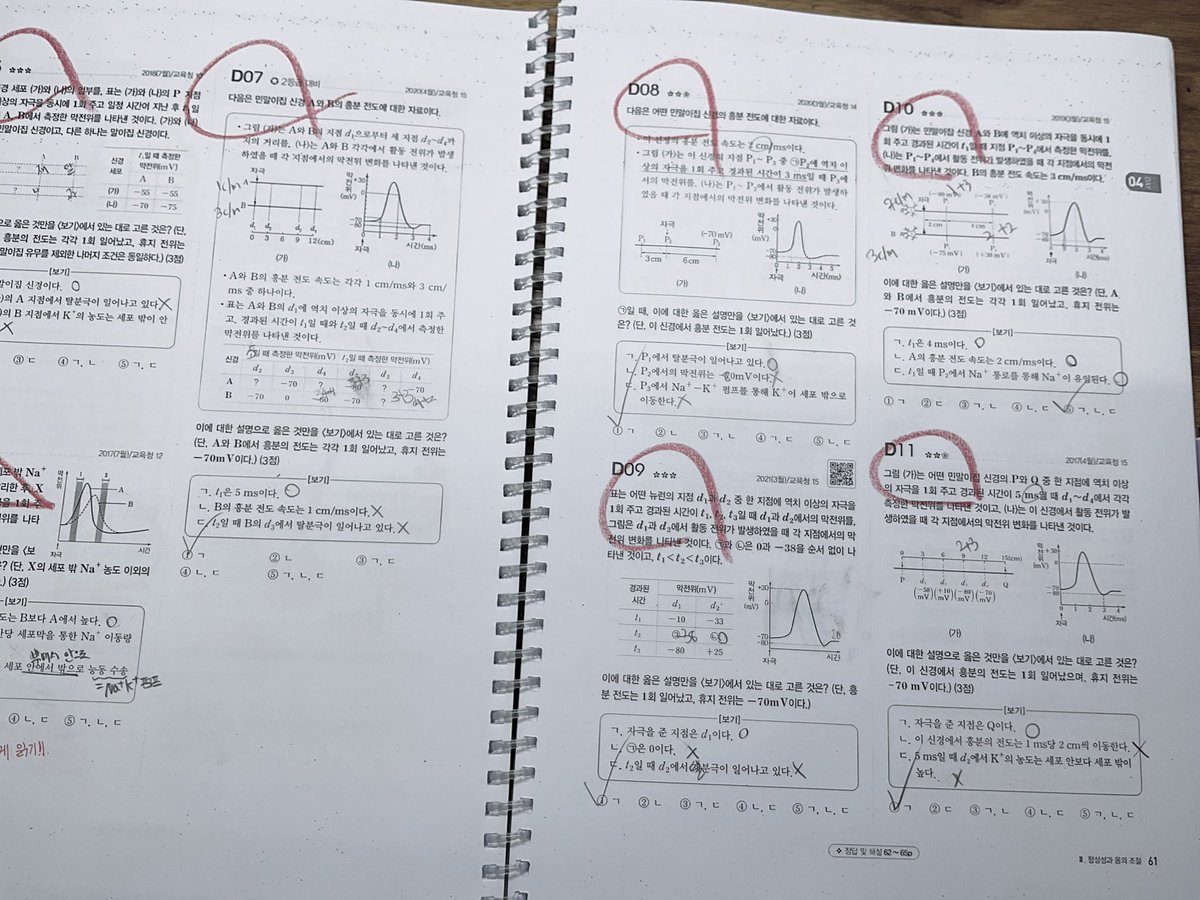 2018(7월)/교육청
경 세포 (가)와 (나)의 일부를, 표는 (가)와 (나)의 P 지점
이상의 자극을 동시에 1회 주고 일정 시간이 지난 후 t₁일
A, B에서 측정한 막전위를 나타낸 것이다. (가)와 (나)
민말이집 신경이고, 다른 하나는 말이집 신경이다.
신경 세포
t₁일 때 측정한 막전위(mV)
A B
(가) -55 -55
(나) -70 -75
것만을 <보기>에서 있는 대로 고른 것은? (단,
흥분의 전도는 각각 1회 일어났고, 휴지 전위는
말이집 유무를 제외한 나머지 조건은 동일하다.) (3점)
[보기]
말이집 신경이다.
의 A 지점에서 탈분극이 일어나고 있다
의 B 지점에서 K⁺의 농도는 세포 밖이 안
③ ㄷ ④ ㄱ, ㄴ ⑤ ㄱ, ㄷ
2017(7월)/교육청 12
세포 밖 Na⁺
A
B
자극
시간
것만을 <보
은? (단, X의 세포 밖 Na⁺ 농도 이외의
.) (3점)
[보기]
도는 B보다 A에서 높다.
단당 세포막을 통한 Na⁺ 이동량
세포 안에서 밖으로 능동 수송
=Na⁺K⁺펌프
④ ㄴ, ㄷ ⑤ ㄱ, ㄴ, ㄷ
게 읽기!!
D07 2등급 대비
2020(4월)/교육청 15
다음은 민말이집 신경 A와 B의 흥분 전도에 대한 자료이다.
• 그림 (가)는 A와 B의 지점 d₁으로부터 세 지점 d₂~d₄까
지의 거리를, (나)는 A와 B 각각에서 활동 전위가 발생
하였을 때 각 지점에서의 막전위 변화를 나타낸 것이다.
자극
A
B
d₁ d₂ d₃ d₄
0 3 6 9 12(cm)
(가)
막전위(mV)
+30
0
-70
-80
0 1 2 3 4
자극
시간(ms)
(나)
• A와 B의 흥분 전도 속도는 각각 1 cm/ms와 3 cm/
ms 중 하나이다.
• 표는 A와 B의 d₁에 역치 이상의 자극을 동시에 1회 주
고, 경과된 시간이 t₁일 때와 t₂일 때 d₂~d₄에서 측정한
막전위를 나타낸 것이다.
신경
일 때 측정한 막전위(mV) t₂일 때 측정한 막전위(mV)
d₂ d₃ d₄ d₂ d₃ d₄
A ? -70 ? -80 ? -70
B -70 0 -60 -70 ?
이에 대한 설명으로 옳은 것만을 <보기>에서 있는 대로 고른 것은?
(단, A와 B에서 흥분의 전도는 각각 1회 일어났고, 휴지 전위는
-70mV이다.) (3점)
[보기]
ㄱ. t₁은 5 ms이다.
ㄴ. B의 흥분 전도 속도는 1 cm/ms이다.
ㄷ. t₂일 때 B의 d₃에서 탈분극이 일어나고 있다.
① ㄱ ② ㄴ ③ ㄱ, ㄷ
④ ㄴ, ㄷ ⑤ ㄱ, ㄴ, ㄷ
D08
2020(3월)/교육청 14
다음은 어떤 민말이집 신경의 흥분 전도에 대한 자료이다.
• 이 신경의 흥분 전도 속도는 2 cm/ms이다.
• 그림 (가)는 이 신경의 지점 P₁~P₃ 중 ㉠P₂에 역치 이
상의 자극을 1회 주고 경과된 시간이 3 ms일 때 P₃에
서의 막전위를, (나)는 P₁~P₃에서 활동 전위가 발생하
였을 때 각 지점에서의 막전위 변화를 나타낸 것이다.
자극 (-70 mV)
P₁ P₂ P₃
3 cm 6 cm
(가)
막전위(mV)
+30
0
-70
-80
0 1 2 3 4 5
자극
시간(ms)
(나)
㉠일 때, 이에 대한 옳은 설명만을 <보기>에서 있는 대로 고른 것
은? (단, 이 신경에서 흥분 전도는 1회 일어났다.) (3점)
[보기]
ㄱ. P₁에서 탈분극이 일어나고 있다.
ㄴ. P₂에서의 막전위는 -80mV이다.
ㄷ. P₃에서 Na⁺-K⁺ 펌프를 통해 K⁺이 세포 밖으로
이동한다.
① ㄱ ② ㄴ ③ ㄱ, ㄴ ④ ㄱ, ㄷ ⑤ ㄴ, ㄷ
D09
2021(3월)/교육청 15
표는 어떤 뉴런의 지점 d₁과 d₂ 중 한 지점에 역치 이상의 자극을
1회 주고 경과된 시간이 t₁, t₂, t₃일 때 d₁과 d₂에서의 막전위를,
그림은 d₁과 d₂에서 활동 전위가 발생하였을 때 각 지점에서의 막
전위 변화를 나타낸 것이다. ㉠과 ㉡은 0과 -38을 순서 없이 나
타낸 것이고, t₁<t₂<t₃이다.
경과된 시간
막전위(mV)
d₁ d₂
t₁ -10 -33
t₂ ㉠ ㉡
t₃ -80 +25
막전위(mV)
+30
0
-70
-80
자극
시간
이에 대한 옳은 설명만을 <보기>에서 있는 대로 고른 것은? (단, 흥
분 전도는 1회 일어났고, 휴지 전위는 -70mV이다.)
[보기]
ㄱ. 자극을 준 지점은 d₁이다.
ㄴ. ㉠은 0이다.
ㄷ. t₂일 때 d₂에서 분극이 일어나고 있다.
① ㄱ ② ㄴ ③ ㄱ, ㄷ ④ ㄴ, ㄷ ⑤ ㄱ, ㄴ, ㄷ
D10
2019(3월)/교육청 15
그림 (가)는 민말이집 신경 A와 B에 역치 이상의 자극을 동시에 1
회 주고 경과된 시간이 t₁일 때 지점 P₁~P₄에서 측정한 막전위를,
(나)는 P₁~P₄에서 활동 전위가 발생하였을 때 각 지점에서의 막전
위 변화를 나타낸 것이다. B의 흥분 전도 속도는 3 cm/ms이다.
2 cm 4 cm
B
(-75 mV) (+30 mV)
(가)
0 1 2 3 4
자극
시간(ms)
(나)
이에 대한 옳은 설명만을 <보기>에서 있는 대로 고른 것은? (단, A
와 B에서 흥분의 전도는 각각 1회 일어났고, 휴지 전위는
-70 mV이다.) (3점)
[보기]
ㄱ. t₁은 4 ms이다.
ㄴ. A의 흥분 전도 속도는 2 cm/ms이다.
ㄷ. t₁일 때 P₂에서 Na⁺ 통로를 통해 Na⁺이 유입된다.
① ㄱ ② ㄷ ③ ㄱ, ㄴ ④ ㄴ, ㄷ ⑤ ㄱ, ㄴ, ㄷ
04
D11
2017(4월)/교육청 15
그림 (가)는 어떤 민말이집 신경의 P와 Q 중 한 지점에 역치 이상
의 자극을 1회 주고 경과된 시간이 5 ms일 때 d₁~d₄에서 각각
측정한 막전위를, (나)는 이 신경에서 활동 전위가 발
생하였을 때 각 지점에서의 막전위 변화를 나타낸 것이다.
0 3 6 9 12 15(cm)
P d₁ d₂ d₃ d₄ Q
(-58 mV) (+10 mV) (-80 mV) (-70 mV)
(가)
막전위(mV)
+30
0
-70
-80
0 1 2 3 4
자극
시간(ms)
(나)
이에 대한 설명으로 옳은 것만을 <보기>에서 있는 대로 고른 것은?
(단, 이 신경에서 흥분 전도는 1회 일어났으며, 휴지 전위는
-70 mV이다.) (3점)
[보기]
ㄱ. 자극을 준 지점은 Q이다.
ㄴ. 이 신경에서 흥분의 전도는 1 ms당 2 cm씩 이동한다.
ㄷ. 5 ms일 때 d₂에서 K⁺의 농도는 세포 안보다 세포 밖이
높다.
① ㄱ ② ㄷ ③ ㄱ, ㄴ ④ ㄴ, ㄷ ⑤ ㄱ, ㄴ, ㄷ
❖ 정답 및 해설 62~65p
Ⅱ. 항상성과 몸의 조절 61